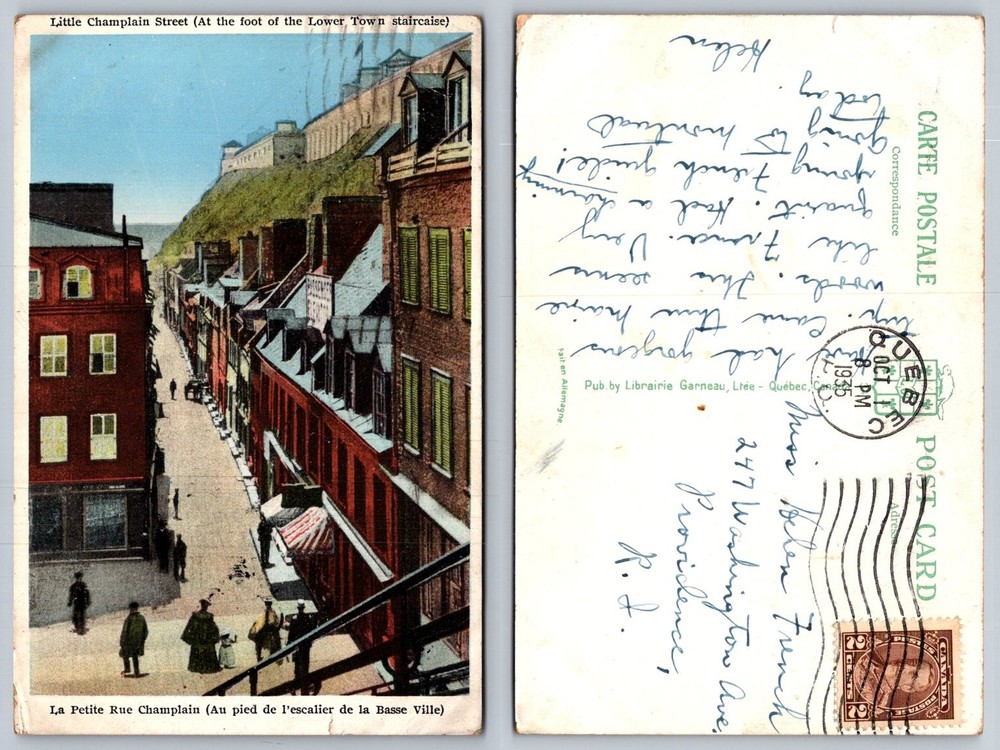 Little Champlain Street (At the foot of the Lower Town staircaise)
La Petite Rue Champlain (Au pied de l'escalier de la Basse Ville)
CARTE POSTALE
POST CARD
Correspondance
Adresse
had gorgeous
trip. Came thru Maine
woods. This seems
like France. Very
quaint. Had a charming
young French guide!
going to Montreal
today.
Helen
Pub. by Librairie Garneau, Ltée - Québec, Canada
Fait en Allemagne
QUEBEC
8 PM
OCT 1
1935
P.Q.
Miss Helen French
247 Washington Ave.
Providence,
R. I.
CANADA
POSTES POSTAGE
2 CENTS 2